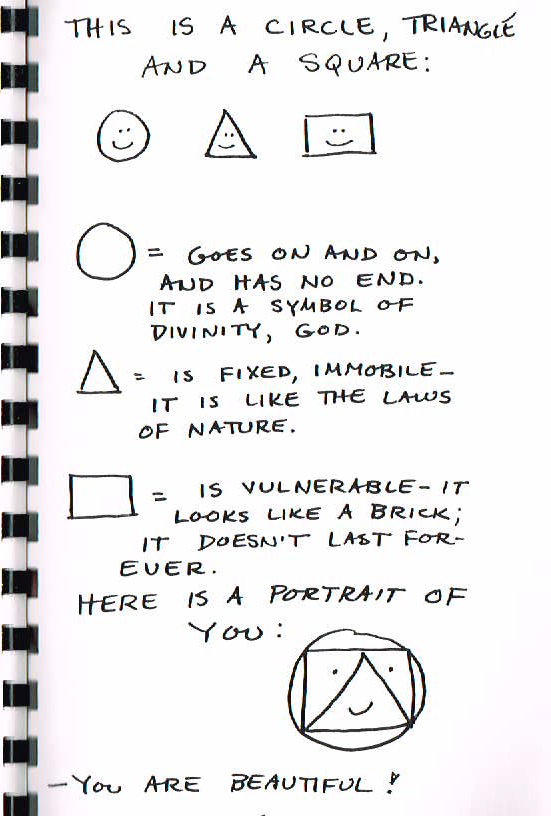 THIS IS A CIRCLE, TRIANGLE
AND A SQUARE:
= GOES ON AND ON,
AND HAS NO END.
IT IS A SYMBOL OF
DIVINITY, GOD.
= IS FIXED, IMMOBILE-
IT IS LIKE THE LAWS
OF NATURE.
= IS VULNERABLE- IT
LOOKS LIKE A BRICK;
IT DOESN'T LAST FOR-
EVER.
HERE IS A PORTRAIT OF
YOU:
-YOU ARE BEAUTIFUL!